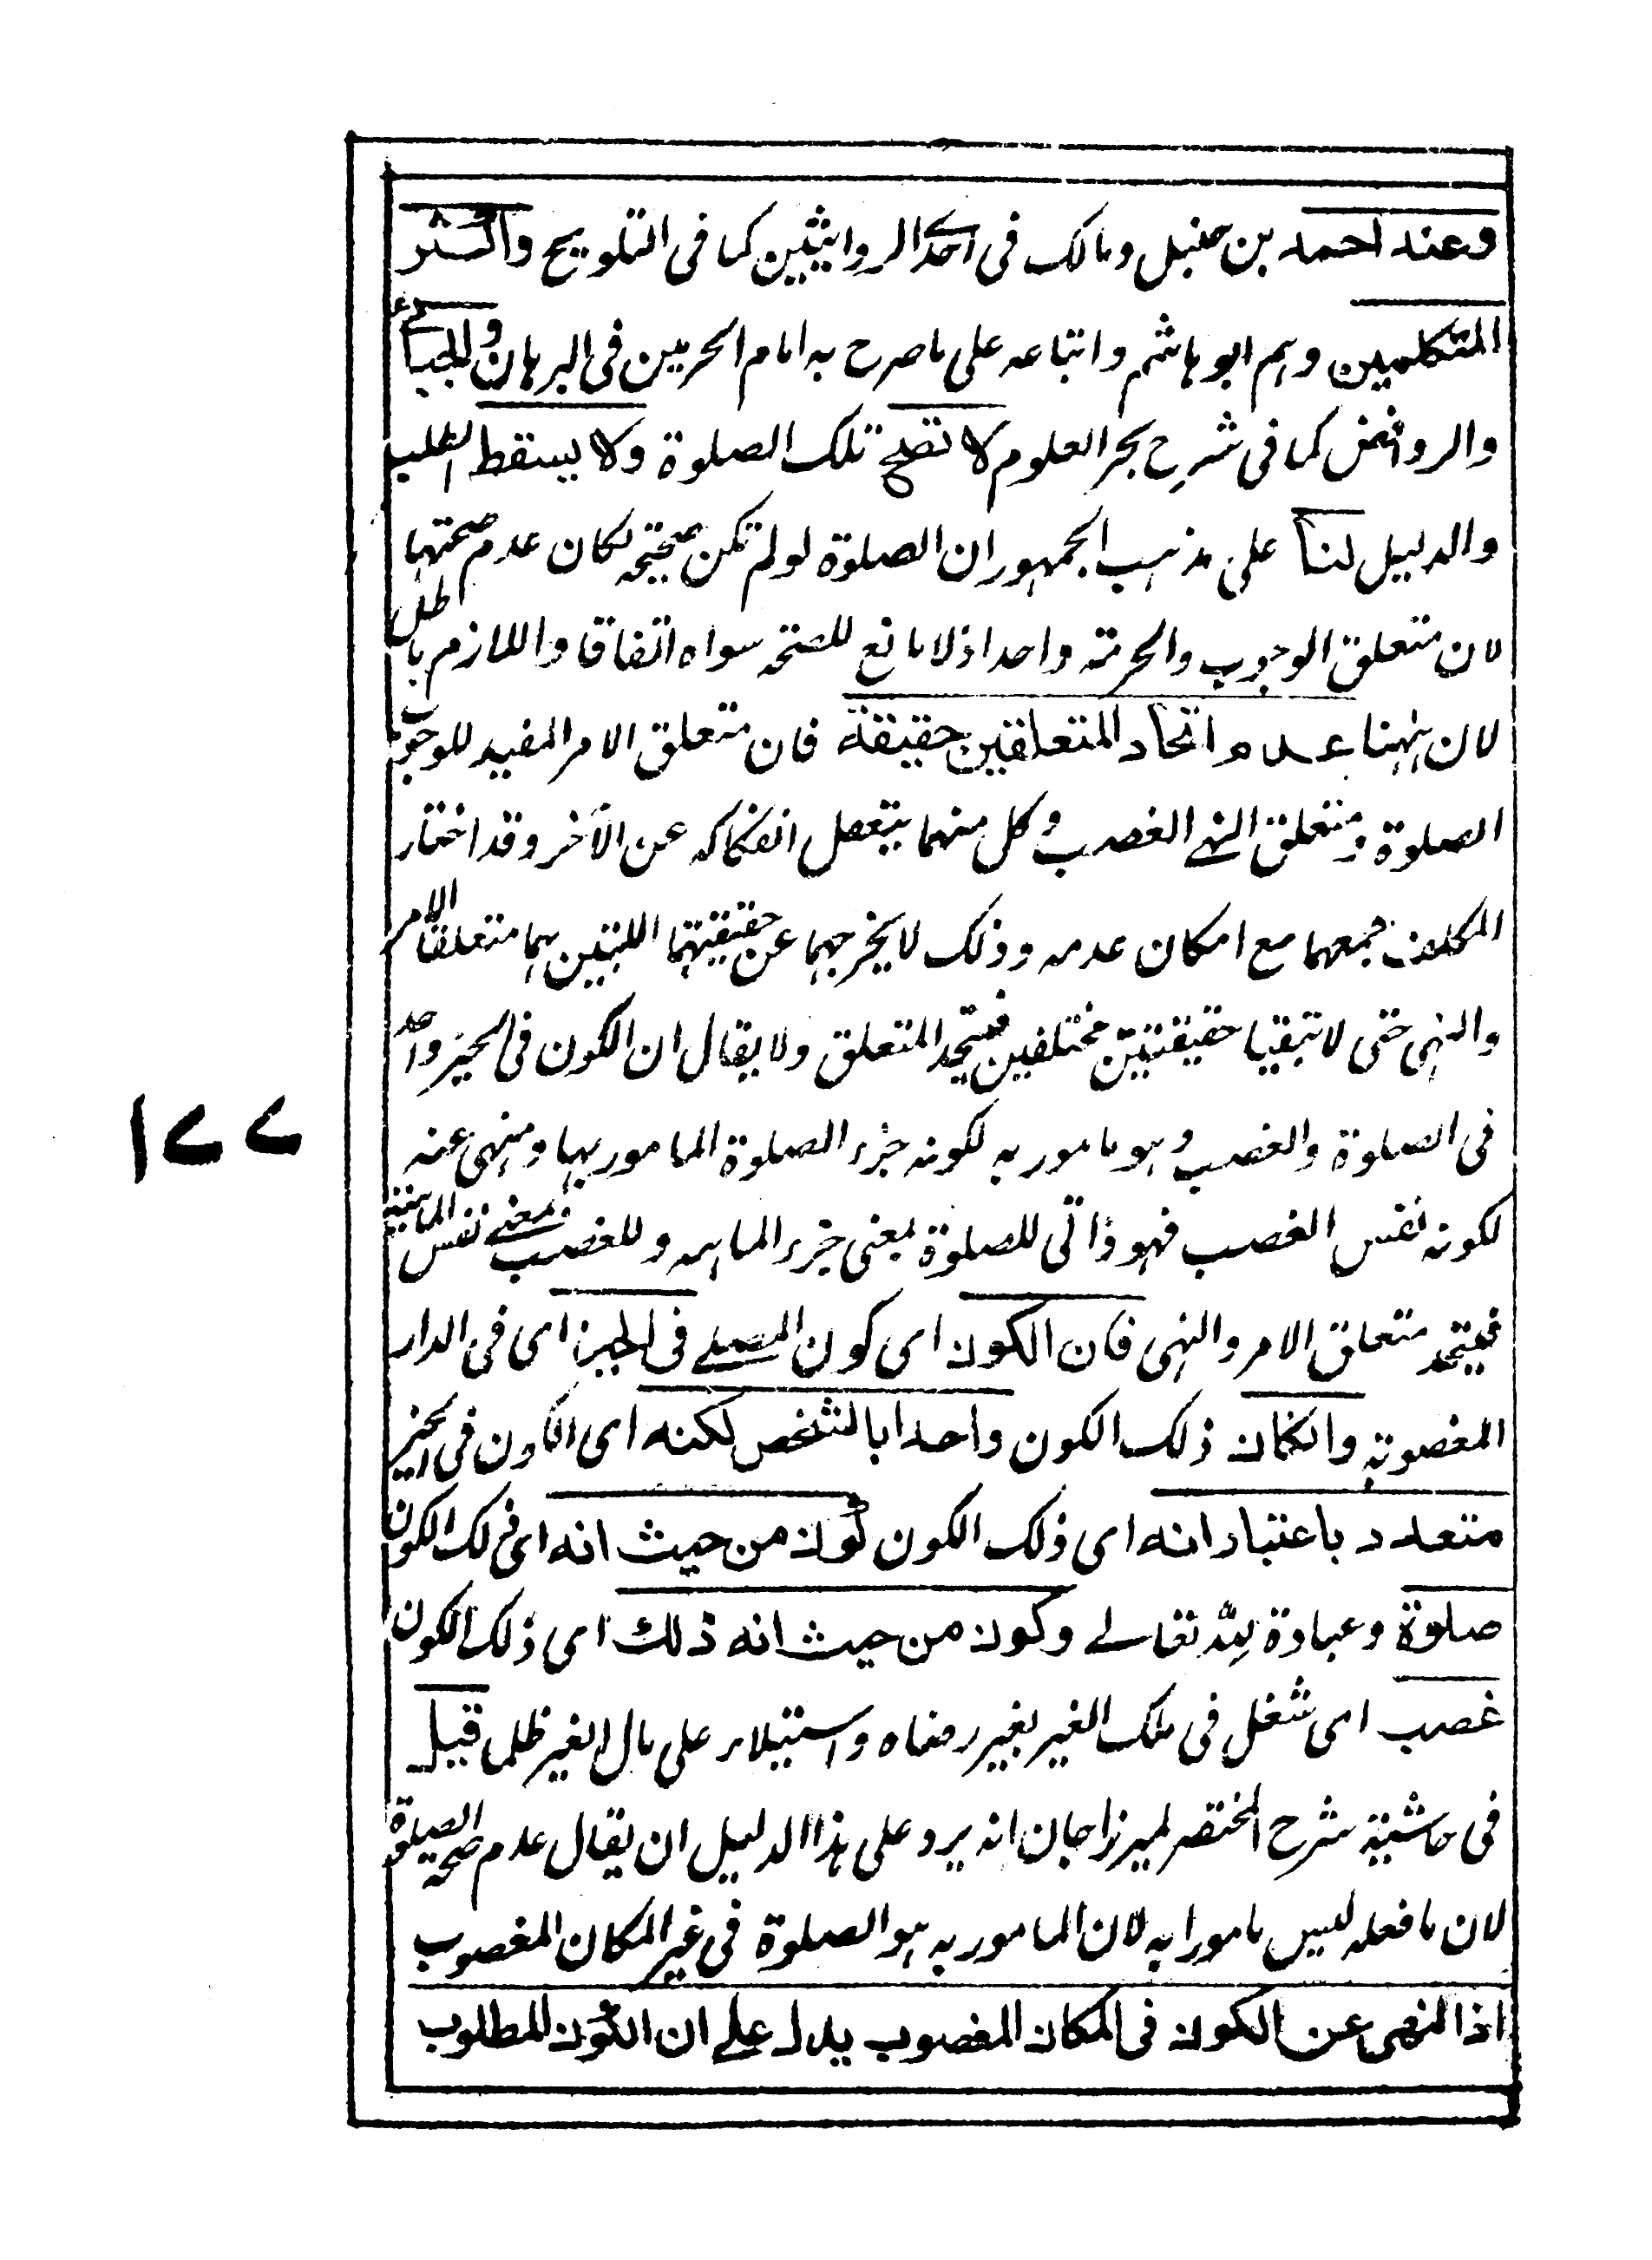 وعند احمد بن حنبل ومالك في احدى الروايتين كما في التلويح واكثر
المتكلمين وهم ابو هاشم واتباعه على ما صرح به امام الحرمين في البرهان والجبائي
والروافض كما في شرح بحر العلوم لا تصح تلك الصلوة ولا يسقط الطلب
والدليل لنا على مذهب الجمهور ان الصلوة لو لم تكن صحيحة لكان عدم صحتها
لان متعلق الوجوب والحرمة واحد اذ لا مانع للصحة سواه اتفاقا واللازم باطل
لان ههنا عدم اتحاد المتعلقين حقيقة فان متعلق الامر المفيد للوجوب
الصلوة ومتعلق النهي الغصب وكل منهما يتعقل انفكاكه عن الآخر وقد اختار
المكلف جمعهما مع امكان عدمه وذلك لا يخرجهما عن حقيقتيهما اللتين هما متعلقا الامر
والنهي حتى لا تبقيا حقيقتين مختلفتين فيتحد المتعلق ولا يقال ان الكون في الحيز واحد
في الصلوة والغصب وهو مامور به لكونه جزء الصلوة المامور بها ومنهي عنه
لكونه نفس الغصب فهو ذاتي للصلوة بمعنى جزء الماهية وللغصب بمعنى نفس الماهية
فيتحد متعلق الامر والنهي فان الكون اى كون المصلے في الحيز اى في الدار
المغصوبة وانكان ذلك الكون واحدا بالشخص لكنه اى الكون في الحيز
متعدد باعتبار انه اى ذلك الكون كون من حيث انه اى ذلك الكون
صلوة وعبادة لله تعالے وكون من حيث انه ذلك اى ذلك الكون
غصب اى شغل في ملك الغير بغير رضاه واستيلاء على مال الغير ظلما قيل
في حاشية شرح المختصر لميرزا جان انه يرد على هذا الدليل ان يقال عدم صحة الصلوة
لان ما فعله ليس مامورا به لان المامور به هو الصلوة في غير المكان المغصوب
اذ النهي عن الكون في المكان المغصوب يدل علے ان الكون المطلوب
١٧٧